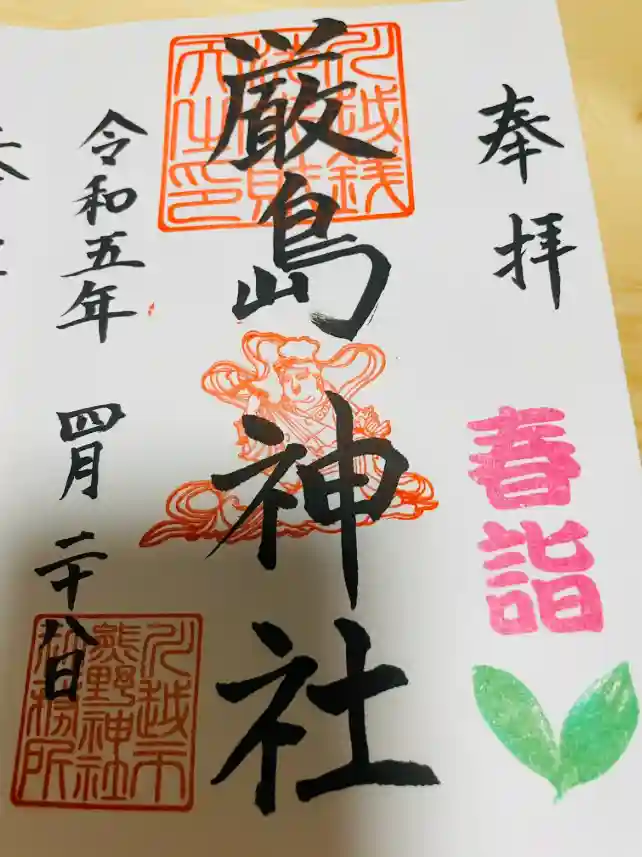 奉拝
春詣
厳島神社
川越銭
洗弁財
天之印
令和五年 四月二十八日
川越市
熊野神社
社務所